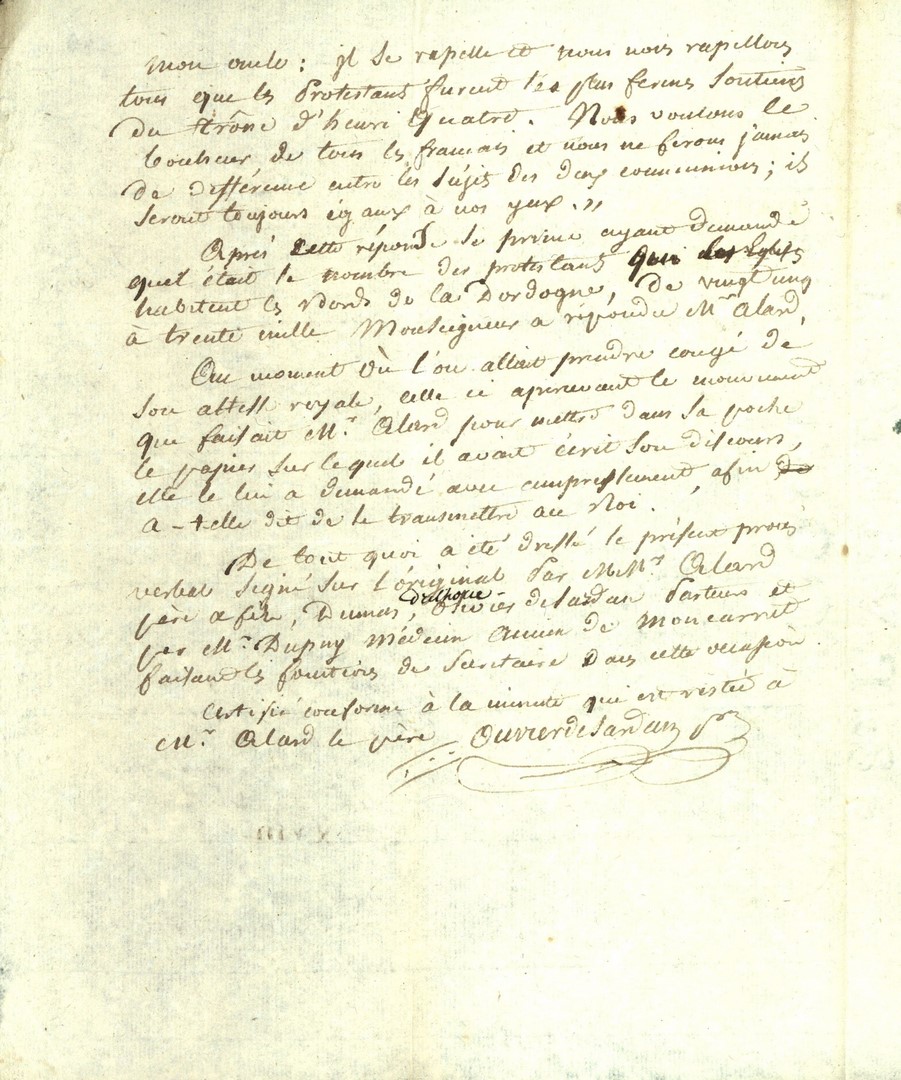 mon oncle : il se rapelle et nous nous rapellons
tous que les Protestans furent les plus fermes soutiens
du trône d'henri Quatre. Nous voulons le
bonheur de tous les francais et nous ne ferons jamais
de différence entre les sujets des deux communions ; ils
seront toujours égaux à nos yeux. »
Après cette réponse le prince ayant demandé
quel était le nombre des protestans qui
habitent les bords de la Dordogne, de vingt cinq
à trente mille Monseigneur a répondu Mr. Alard.
Au moment où l'on allait prendre congé de
son altesse royale, celle ci apercevant le mouvement
que faisait Mr. Alard pour mettre dans sa poche
le papier sur lequel il avait écrit son discours,
elle le lui a demandé avec empressement, afin
a-t-elle dit de le transmettre au Roi.
De tout quoi a été dressé le présent procès
verbal signé sur l'original par MMrs Alard
père et fils, Dumas, Olivier de Sardan Pasteurs et
par Mr. Dupuy médecin ancien de moncarret
faisant les fonctions de Secretaire dans cette occasion
Certifié conforme à la minute qui est restée à
Mr. Alard le père Olivier de Sardan pr